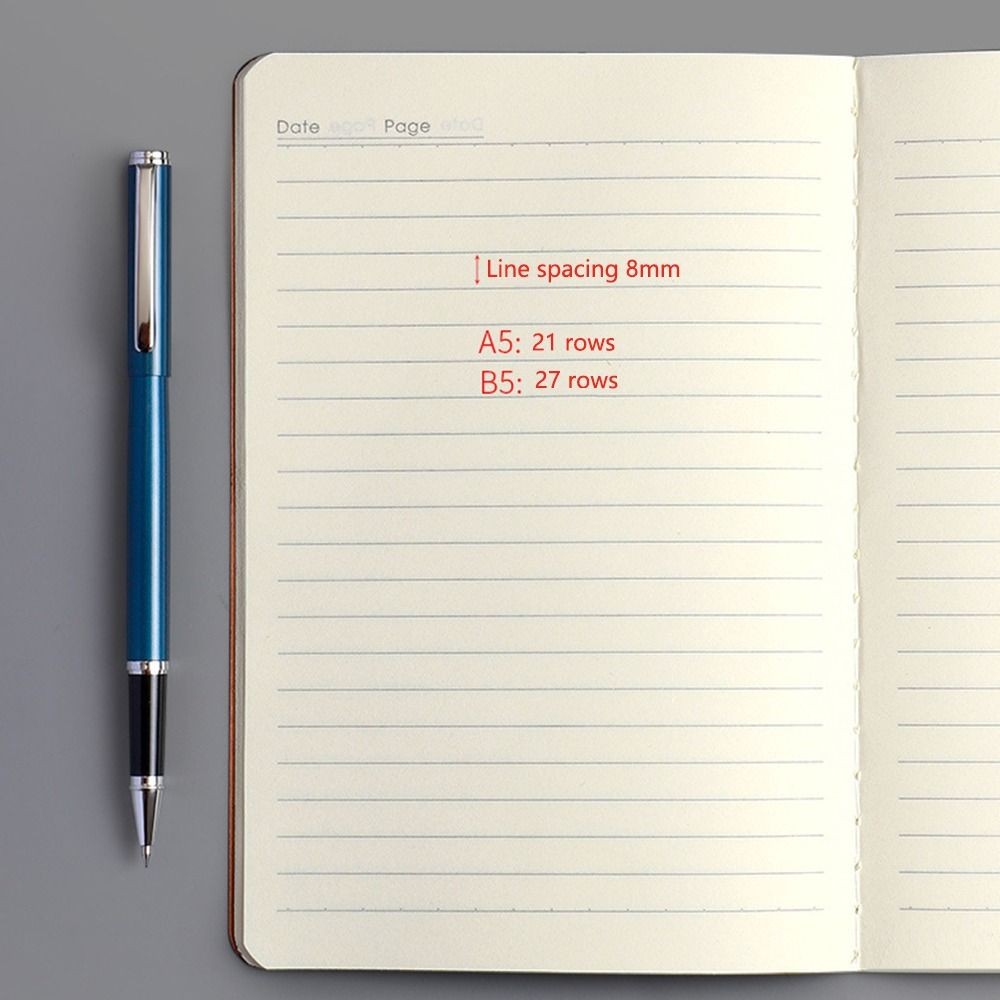 Date Page
Line spacing 8mm
A5: 21 rows
B5: 27 rows